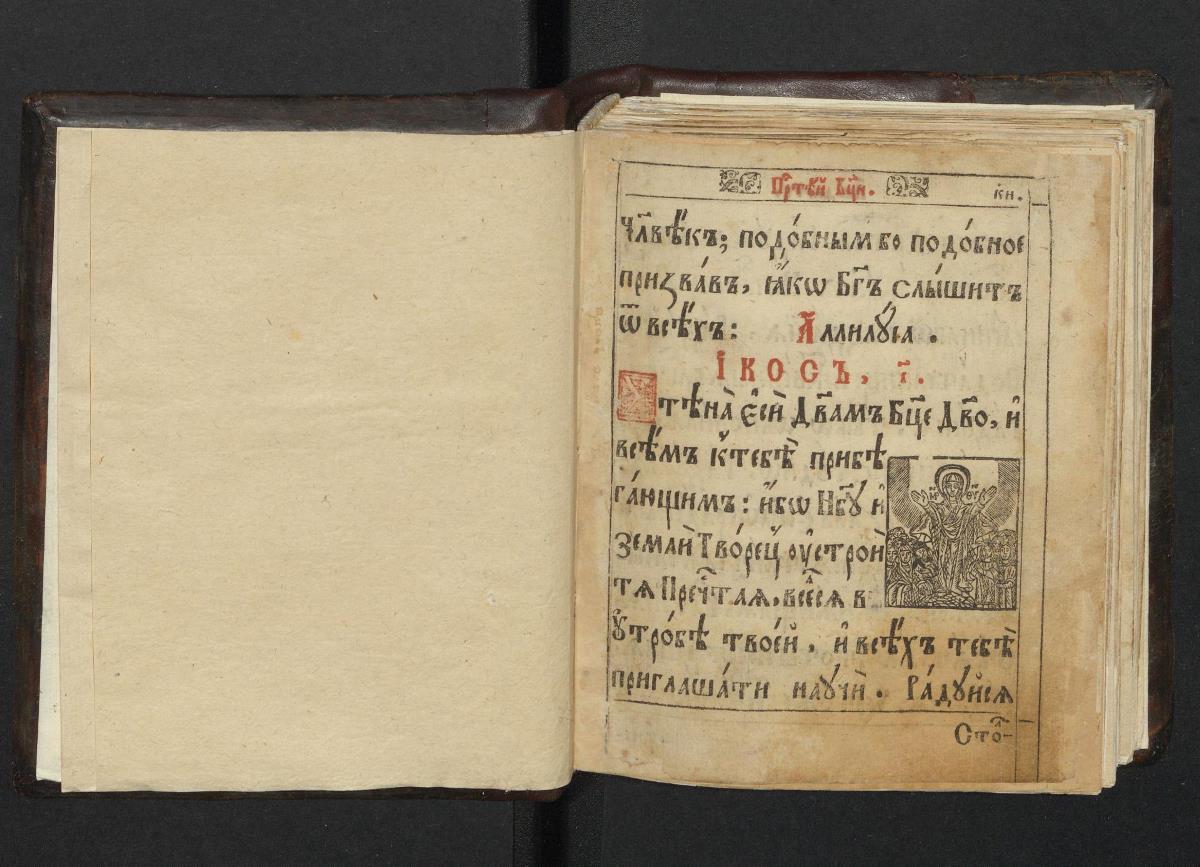 Прⷭ҇тѣй Бц҃и. к҃и.
Чл҃вѣ́къ; подо́бным бо подо́бное
призва́въ, ꙗ҆́кѡ Бг҃ъ слы́шитъ
ѿ всѣ́хъ: А҆ллилꙋ́їа.
І҆КОСЪ, і҃.
Стѣна̀ є҆сѝ Дв҃амъ Бц҃е Дв҃о, и҆
всѣ́мъ к̾тебѣ̀ прибѣ
га́ющимъ: и҆́бѡ Нб҃ꙋ и҆
землѝ Тво́рец̾ ᲂу҆строѝ
тѧ Пречⷭ҇таѧ, все́лсѧ в̾
ᲂу҆тро́бѣ твое́й, и҆ всѣ́хъ тебѣ̀
приглаша́ти наꙋчѝ. Ра́дꙋйсѧ
Сто́л-
МР҃ ѲУ҃